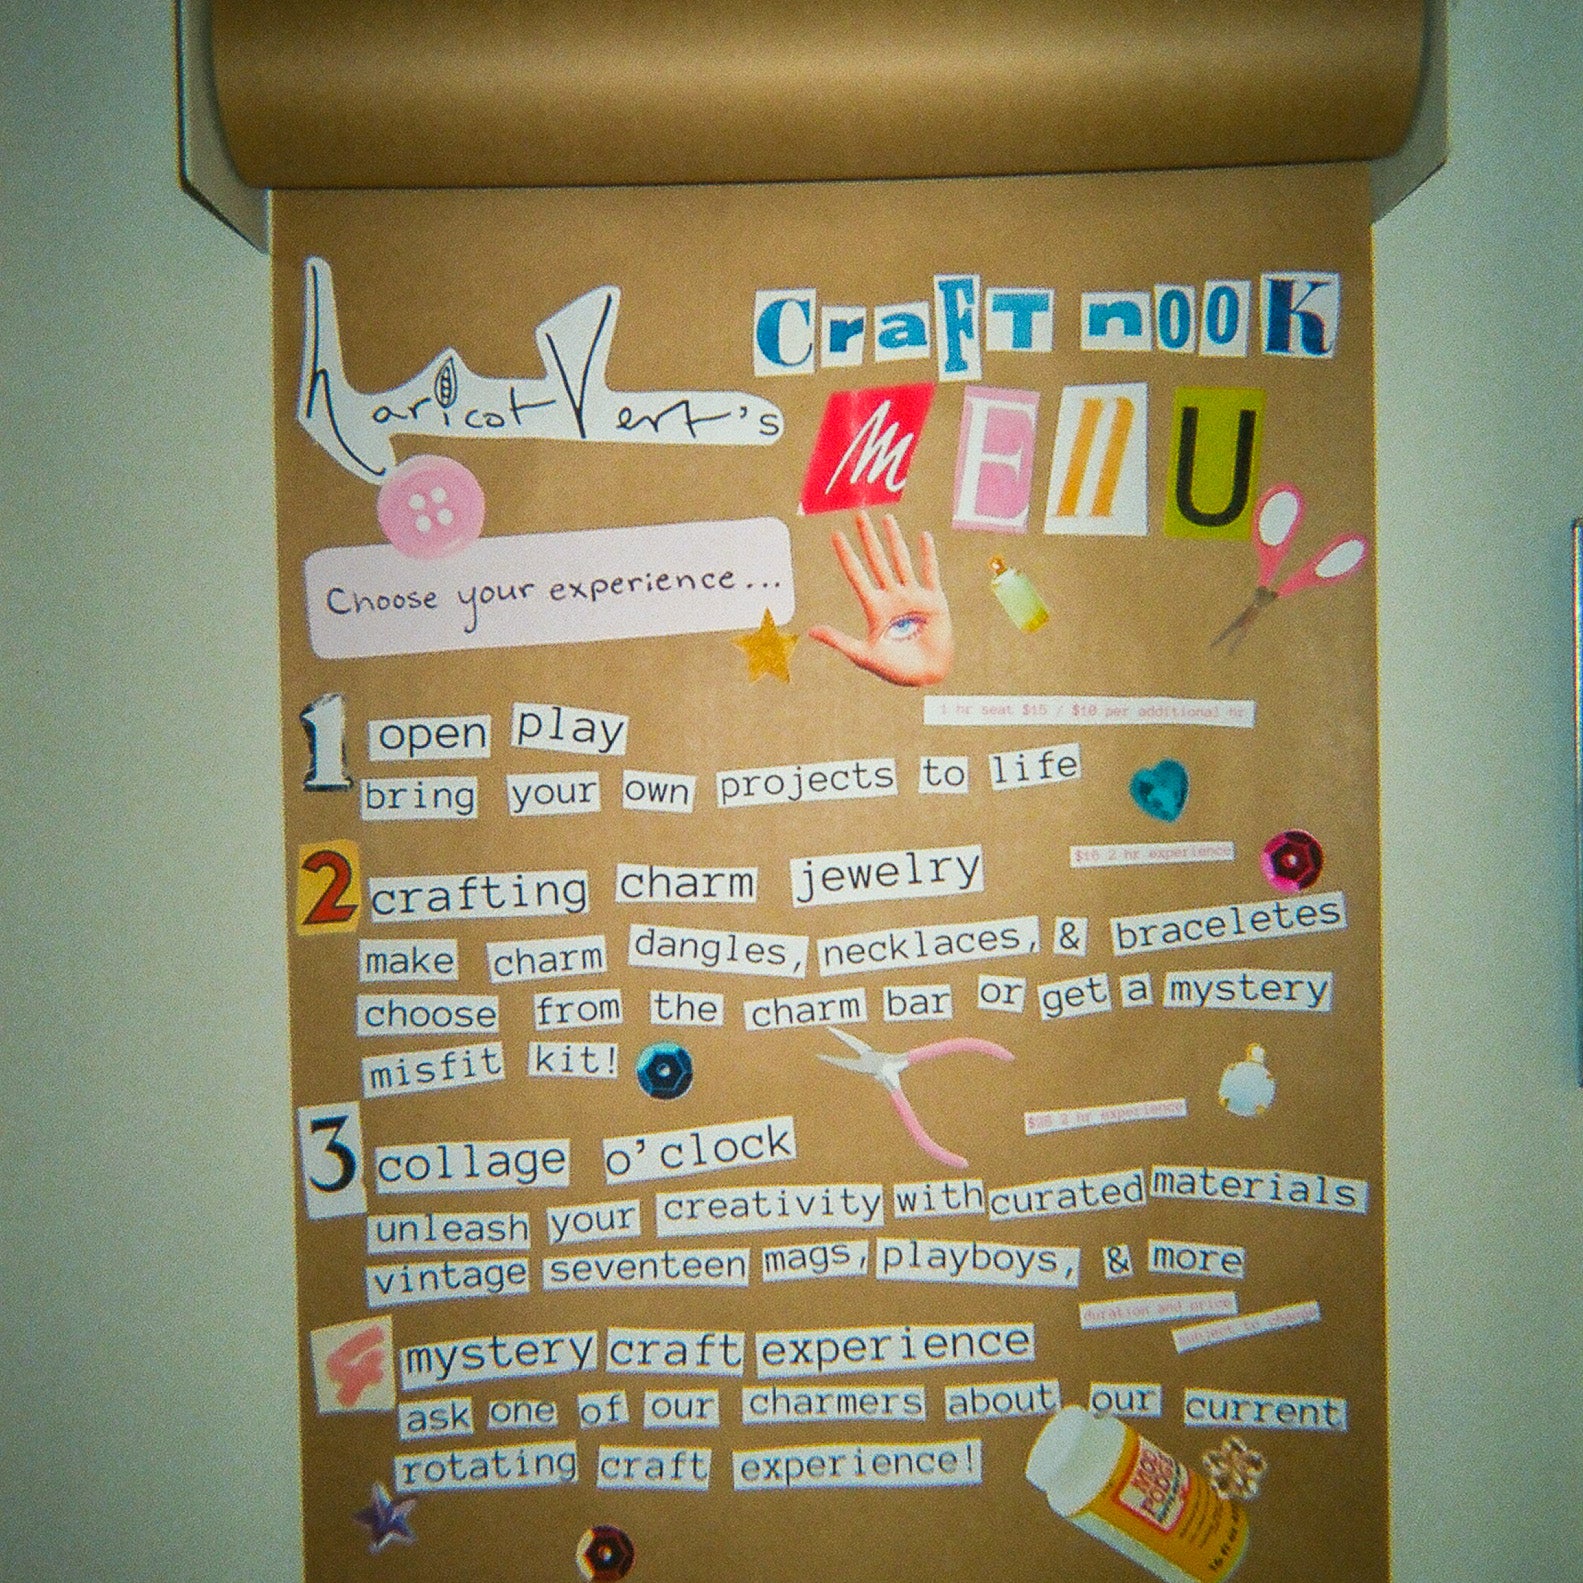 haricot Vert's
Craft nook
mEnU
Choose your experience...
1 open play
1 hr seat $15 / $10 per additional hr
bring your own projects to life
2 crafting charm jewelry
2 hr experience
make charm dangles, necklaces, & braceletes
choose from the charm bar or get a mystery
misfit kit!
3 collage o'clock
2 hr experience
unleash your creativity with curated materials
vintage seventeen mags, playboys, & more
4 mystery craft experience
duration and price
subject to change
ask one of our charmers about our current
rotating craft experience!
MOD
PODGE
16 fl oz